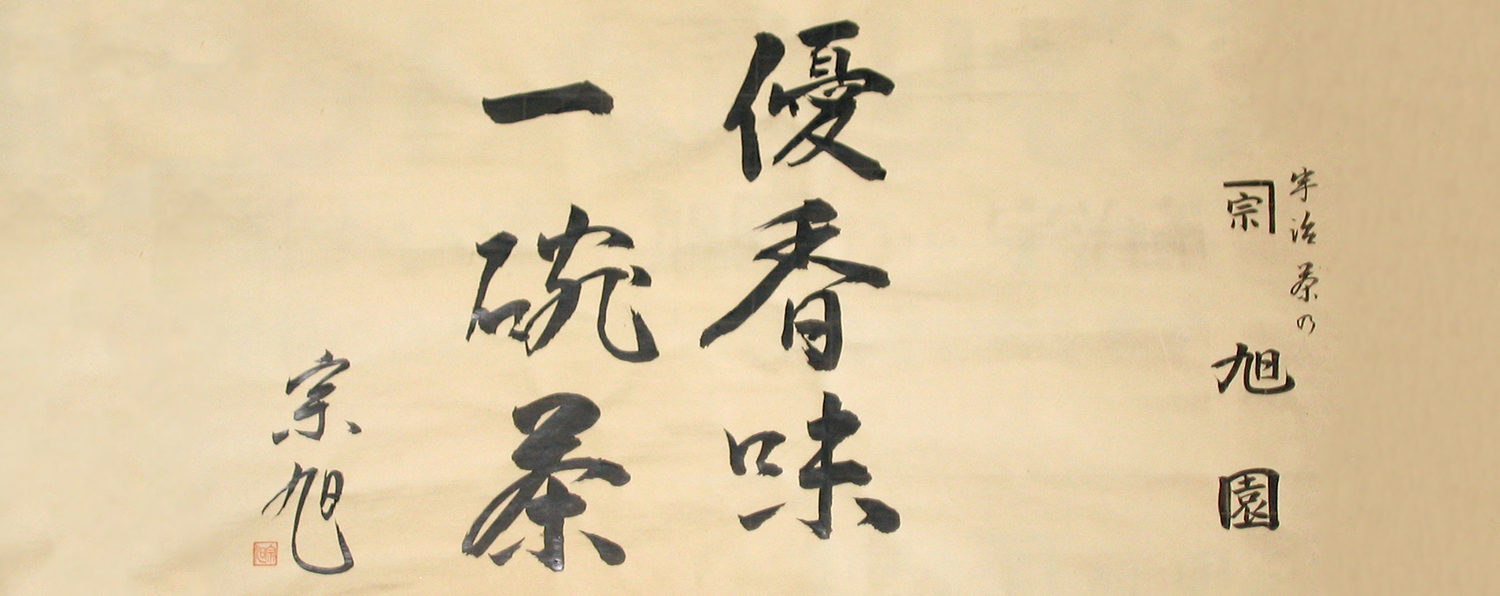 宇治茶の
宗 旭園
優香味
一碗茶
宗旭